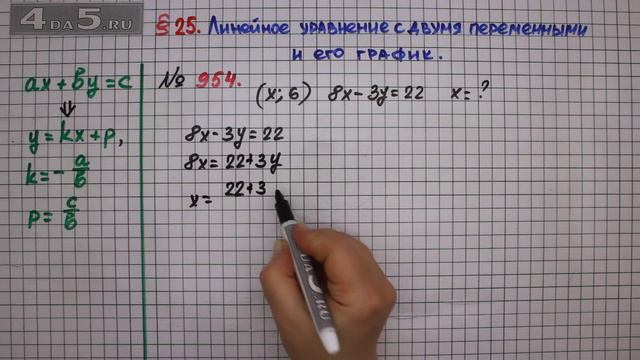 4DA5.RU
§ 25. Линейное уравнение с двумя переменными
и его график.
ax+by=c
⇓
y=kx+p,
k=-a/b
p=c/b
№ 954.
(x; 6) 8x-3y=22 x=?
8x-3y=22
8x=22+3y
x= 22+3
DA5.RU